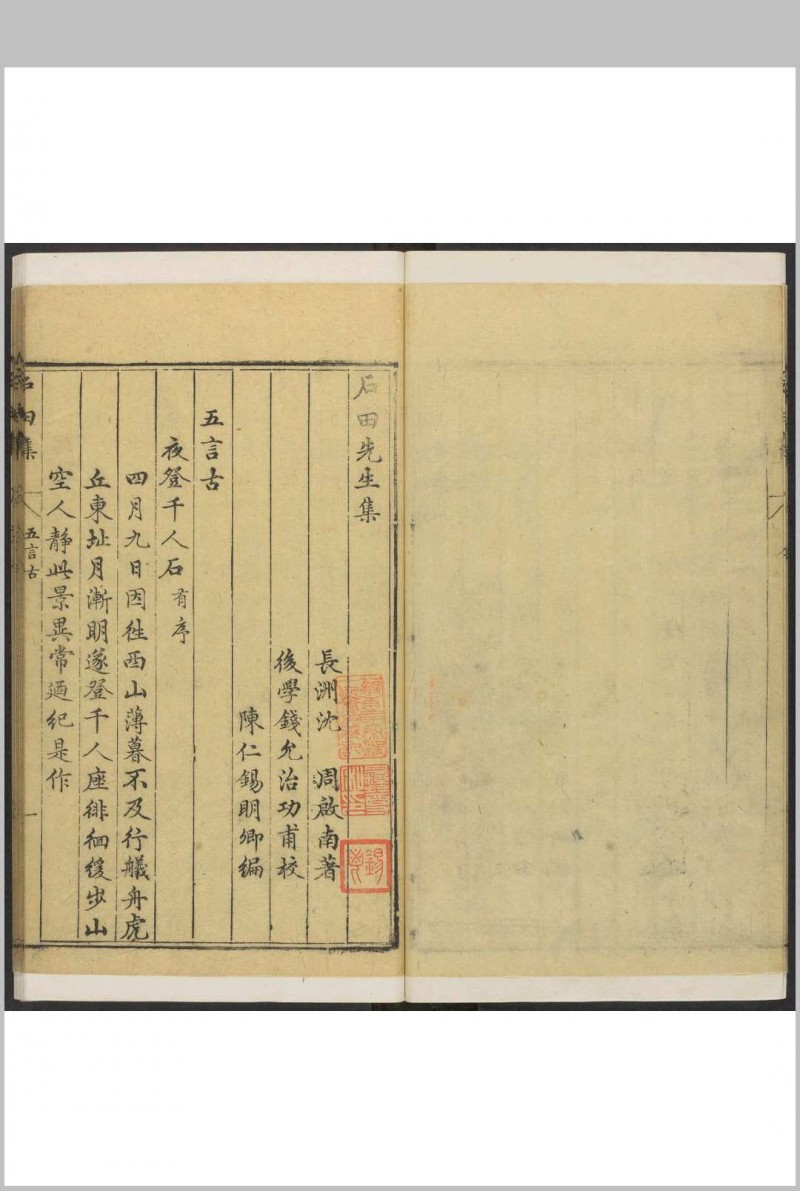 石田先生集
長洲沈 周啟南著
後學錢允治功甫校
陳仁錫明卿編
五言古
夜登千人石有序
四月九日因徃西山薄暮不及行艤舟虎
丘東址月漸明遂登千人座徘徊緩步山
空人靜此景異常廼紀是作
石田集
五言古
一